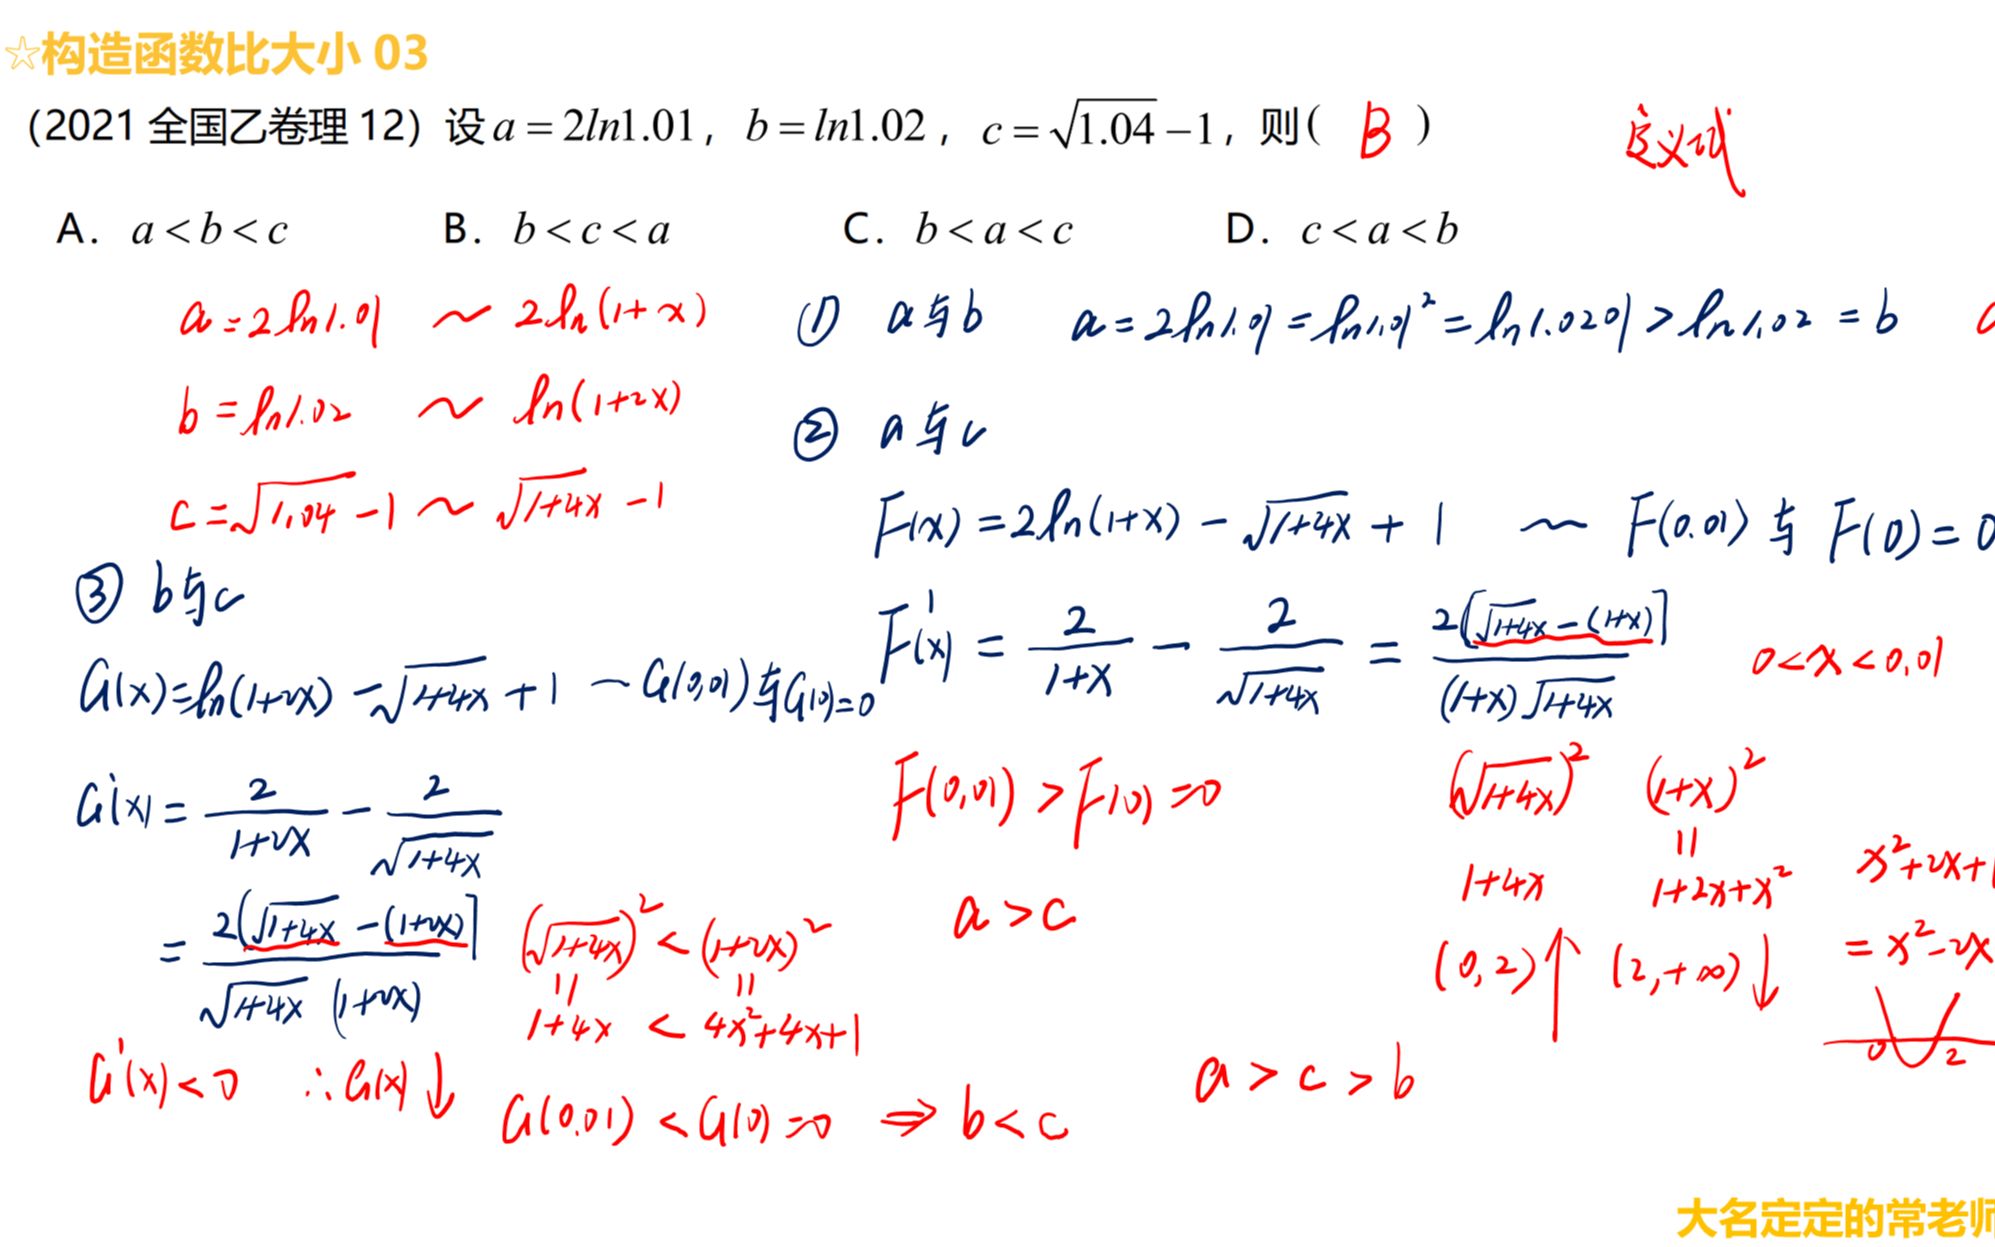 ☆构造函数比大小 03
(2021 全国乙卷理 12) 设 a = 2ln1.01, b = ln1.02, c = √1.04 − 1, 则( B )
定义域
A. a < b < c B. b < c < a C. b < a < c D. c < a < b
a = 2ln1.01 ~ 2ln(1+x)
b = ln1.02 ~ ln(1+2x)
c = √1.04 − 1 ~ √1+4x − 1
① a与b a = 2ln1.01 = ln1.01² = ln1.0201 > ln1.02 = b
② a与c
F(x) = 2ln(1+x) − √1+4x + 1 ~ F(0.01) 与 F(0) = 0
F'(x) = 2/(1+x) − 2/√1+4x = 2[√1+4x − (1+x)]/(1+x)√1+4x 0<x<0.01
(√1+4x)² (1+x)²
॥
1+4x 1+2x+x²
x²+2x+1
= x²−2x
(0,2)↑ (2,+∞)↓
0 2
F(0.01) > F(0) = 0
a > c
③ b与c
G(x) = ln(1+2x) − √1+4x + 1 ~ G(0.01) 与 G(0) = 0
G'(x) = 2/(1+2x) − 2/√1+4x
= 2[√1+4x − (1+2x)]/√1+4x (1+2x)
(√1+4x)² < (1+2x)²
॥ ॥
1+4x < 4x²+4x+1
G'(x) < 0 ∴ G(x)↓ G(0.01) < G(0) = 0 ⇒ b < c
a > c > b
大名定定的常老师